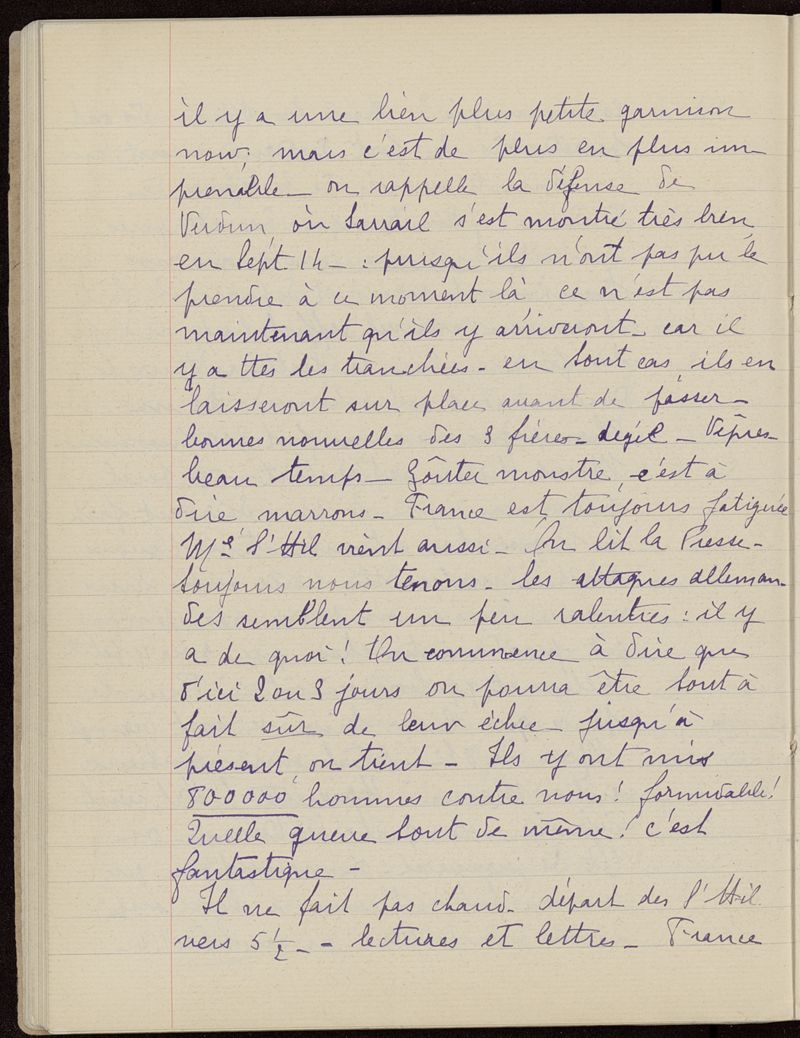 il y a une bien plus petite garnison
now; mais c'est de plus en plus im-
prenable - on rappelle la défense de
Verdun, où Sarrail s'est montré très bien
en Sept. 14 - : puisqu'ils n'ont pas pu le
prendre à ce moment là ce n'est pas
maintenant qu'ils y arriveront - car il
y a ttes les tranchées - en tout cas, ils en
laisseront sur place avant de passer -
bonnes nouvelles des 3 frères - dégel - Vêpres -
beau temps - Goûter monstre, c'est à
dire marrons - France est toujours fatiguée
Me S'Hil vient aussi - On lit la Presse -
toujours nous tenons - les attaques alleman-
des semblent un peu ralenties : il y
a de quoi ! On commence à dire que
d'ici 2 ou 3 jours on pourra être tout à
fait sûr de leur échec - jusqu'à
présent, on tient - Ils y ont mis
800000 hommes contre nous ! formidable !
Quelle guerre tout de même ! c'est
fantastique -
Il ne fait pas chaud - départ des S'Hil
vers 5 ½ - - lectures et lettres - France